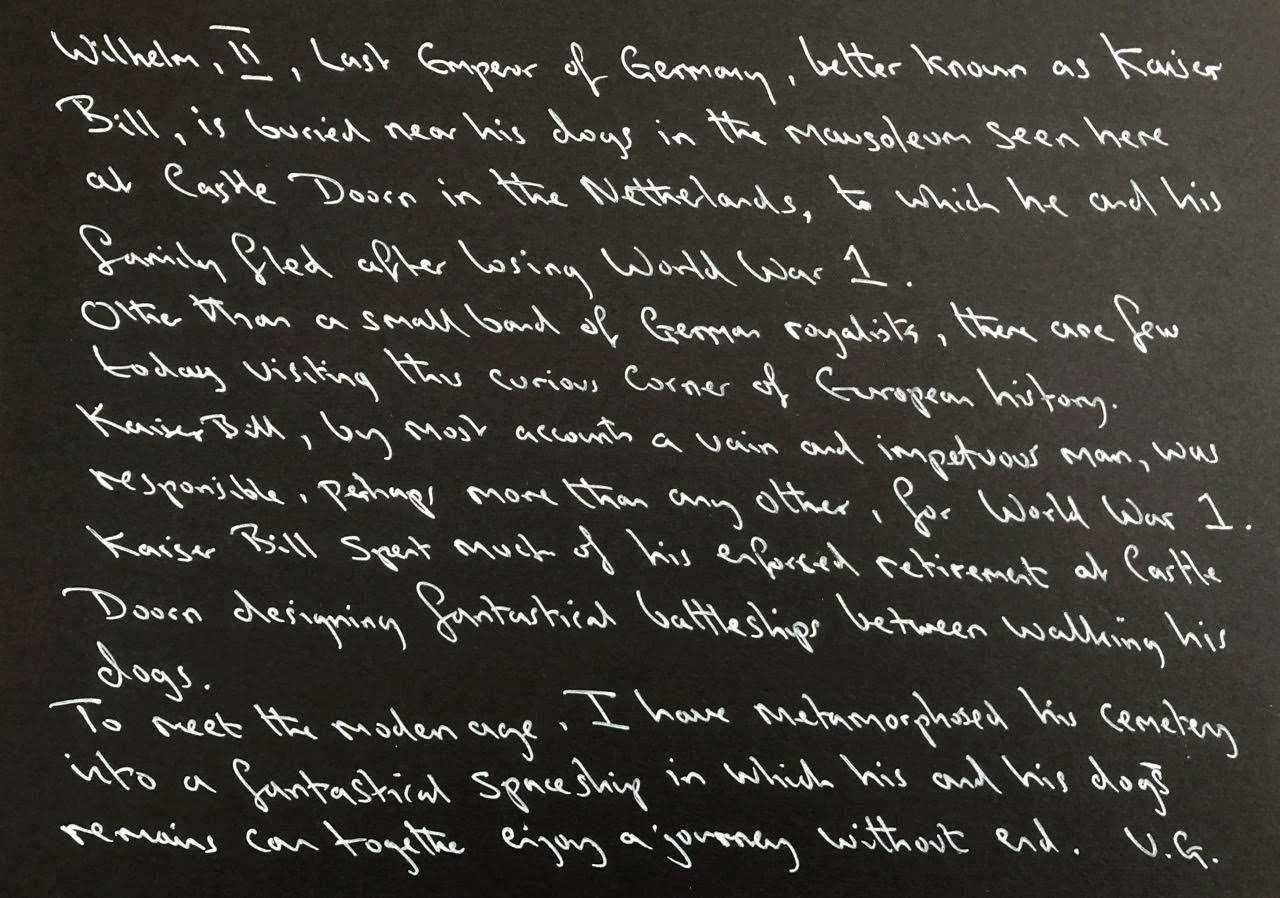 Wilhelm, II, Last Emperor of Germany, better known as Kaiser
Bill, is buried near his dogs in the mausoleum seen here
at Castle Doorn in the Netherlands, to which he and his
family fled after losing World War 1.
Other than a small band of German royalists, there are few
today visiting this curious corner of European history.
Kaiser Bill, by most accounts a vain and impetuous man, was
responsible, perhaps more than any other, for World War 1.
Kaiser Bill spent much of his enforced retirement at Castle
Doorn designing fantastical battleships between walking his
dogs.
To meet the modern age, I have metamorphosed his cemetery
into a fantastical spaceship in which his and his dogs
remains can together enjoy a journey without end. V.G.